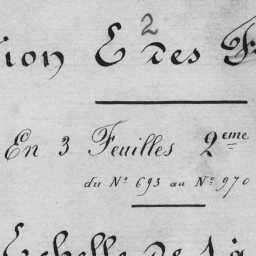 tion E 2 des F
En 3 Feuilles 2eme
du No 693 au No 970
Echelle de 1 à